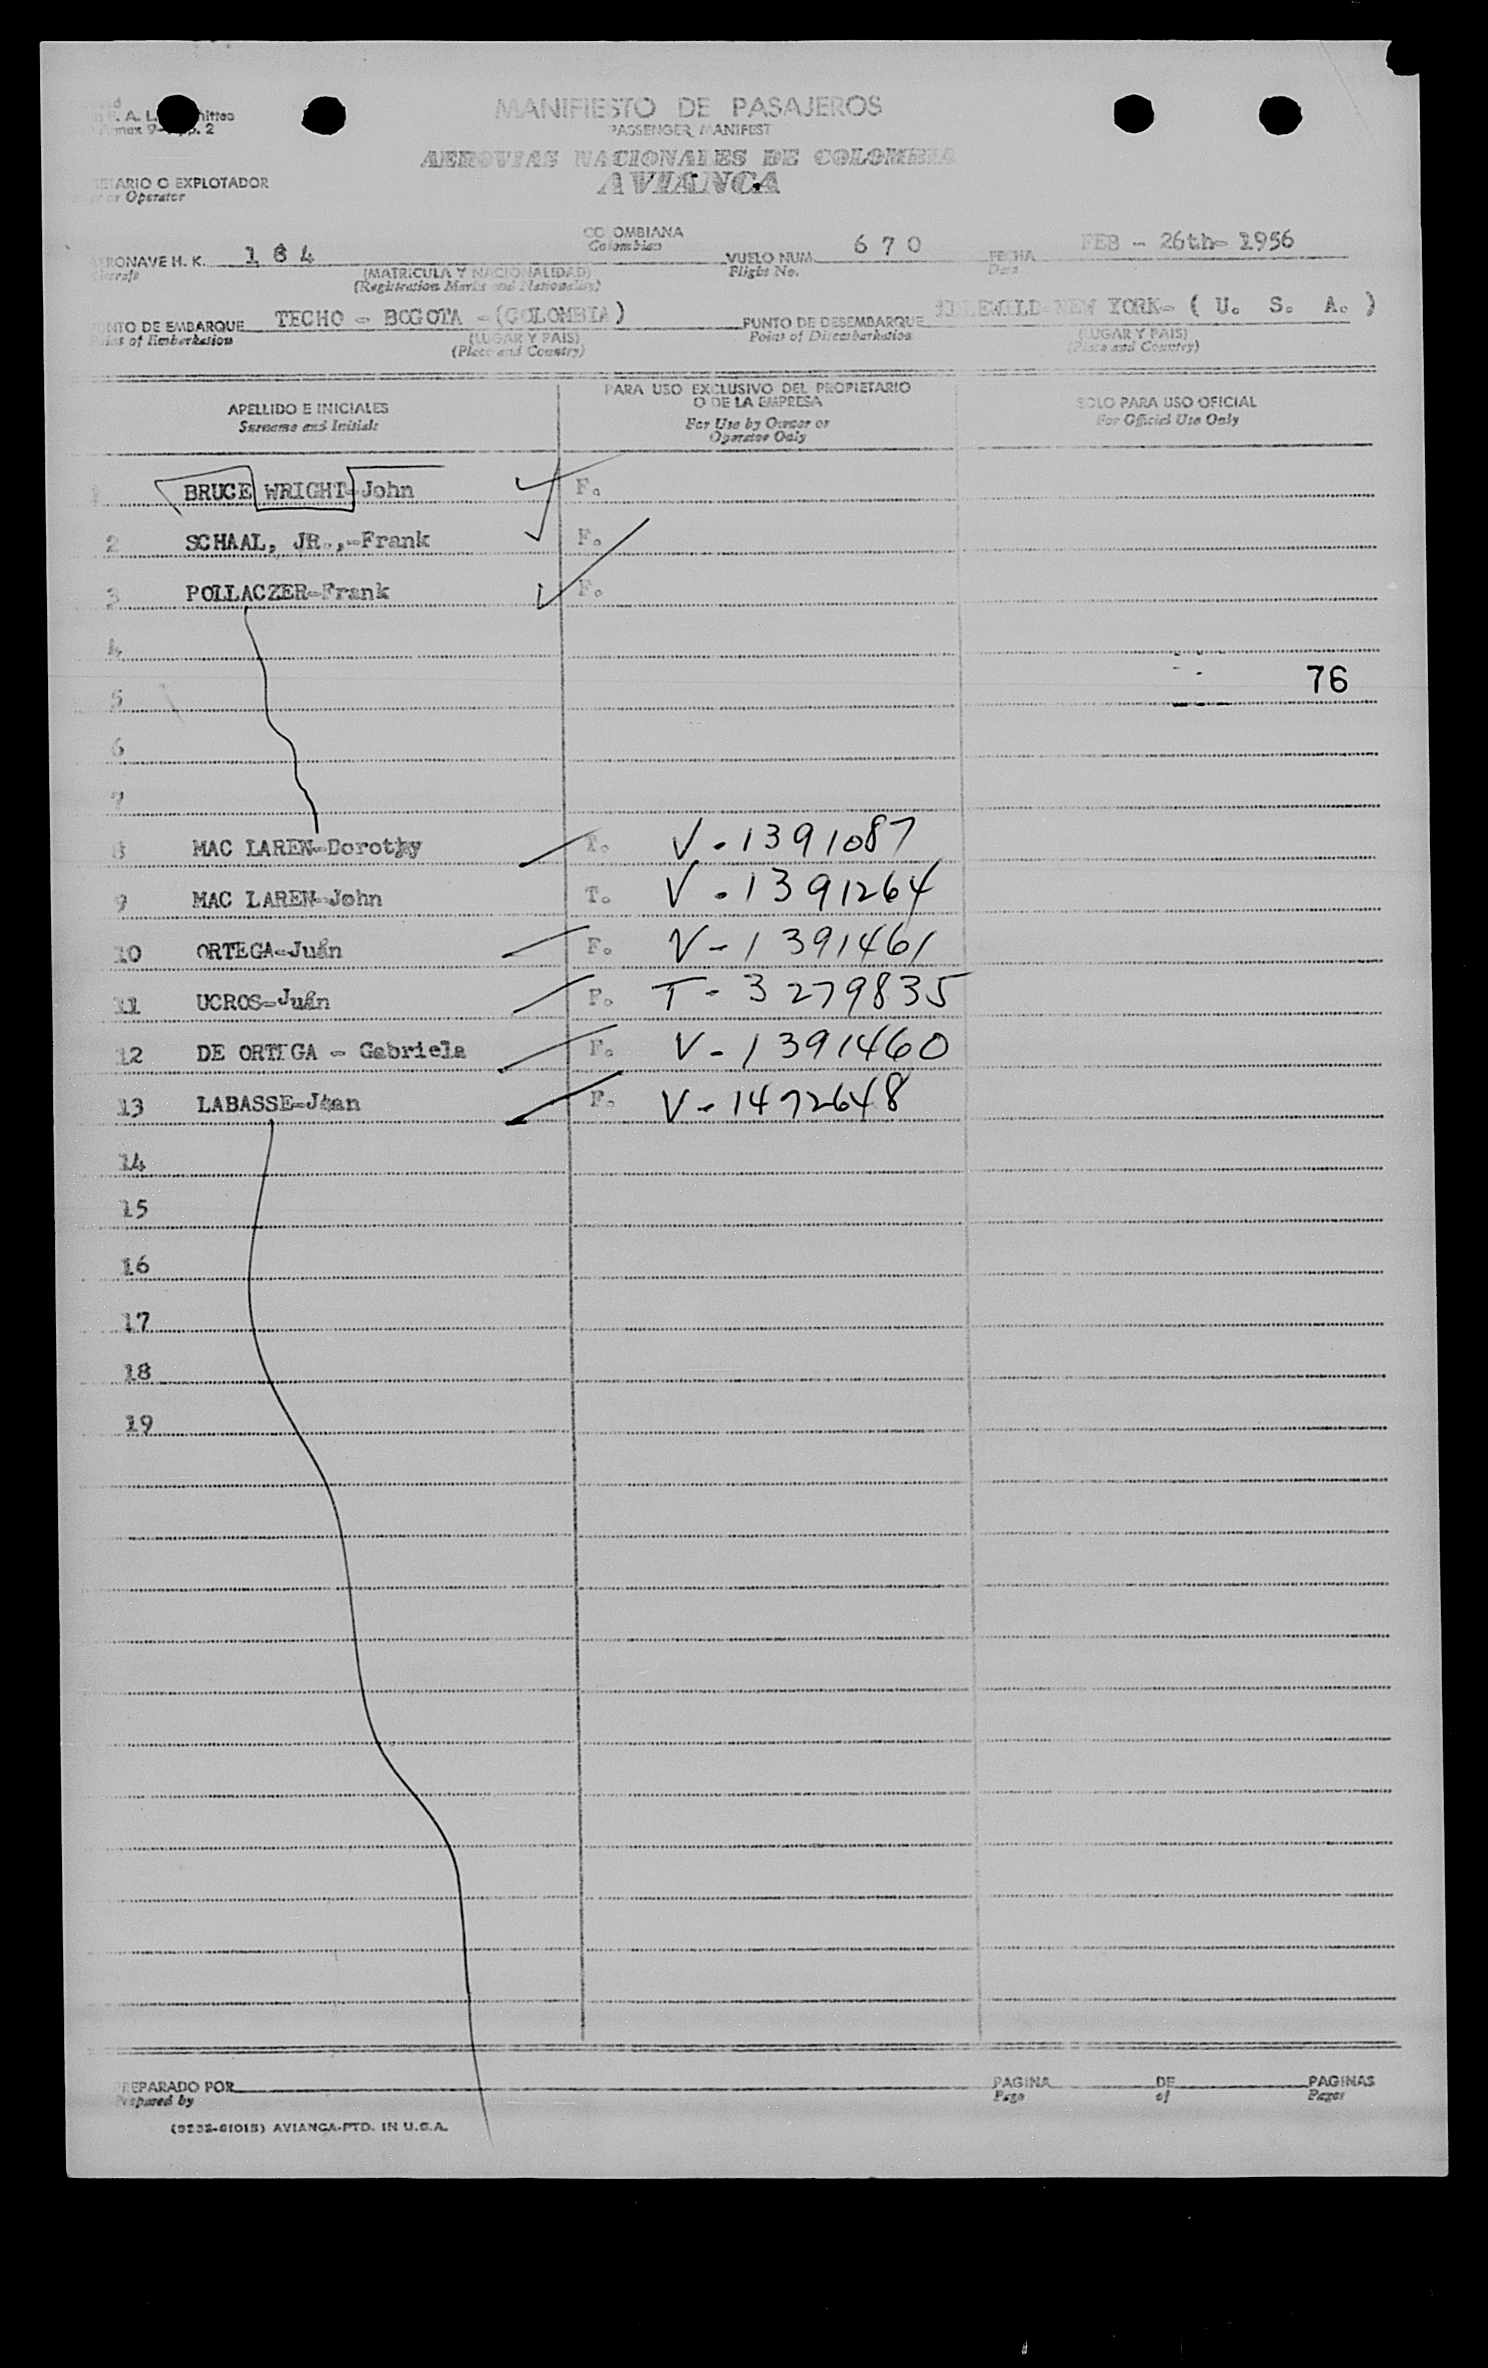 MANIFIESTO DE PASAJEROS
PASSENGER MANIFEST
AEROVIAS NACIONALES DE COLOMBIA
AVIANCA
ETARIO O EXPLOTADOR
or Operator
COLOMBIANA
Colombian
RONAVE H. K. 184
(MATRICULA Y NACIONALIDAD)
(Registration Marks and Nationality)
VUELO NUM. 670
Flight No.
FECHA FEB - 26th- 1956
Date
UNTO DE EMBARQUE TECHO - BOGOTA - (COLOMBIA)
Point of Embarkation
(LUGAR Y PAIS)
(Place and Country)
PUNTO DE DESEMBARQUE IDLEWILD-NEW YORK- ( U. S. A. )
Point of Disembarkation
(LUGAR Y PAIS)
(Place and Country)
APELLIDO E INICIALES
Surname and Initials
PARA USO EXCLUSIVO DEL PROPIETARIO
O DE LA EMPRESA
For Use by Owner or
Operator Only
SOLO PARA USO OFICIAL
For Official Use Only
1 BRUCE WRIGHT-John F.
2 SCHAAL, JR.,-Frank F.
3 POLLACZER-Frank F.
4
76
5
6
7
8 MAC LAREN-Dorothy T. V-1391087
9 MAC LAREN-John T. V-1391264
10 ORTEGA-Juán F. V-1391461
11 UCROS-Juán F. T-3279835
12 DE ORTEGA - Gabriela F. V-1391460
13 LABASSE-Jean F. V-1472648
14
15
16
17
18
19
PREPARADO POR
Prepared by
PAGINA DE PAGINAS
Page of Pages
(9232-61015) AVIANCA-PTD. IN U.S.A.